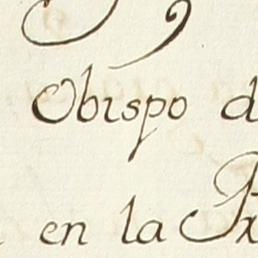 Obispo d
en la